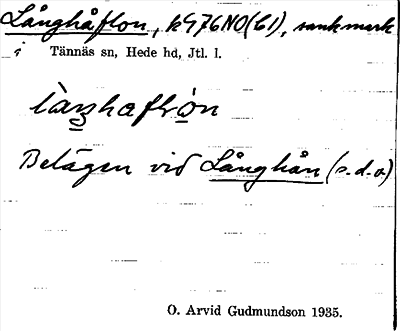 Långhåflon, k976NO(b1), sank mark
i Tännäs sn, Hede hd, Jtl. l.
Belägen vid Långhån (s.d.o.)
O. Arvid Gudmundson 1935.